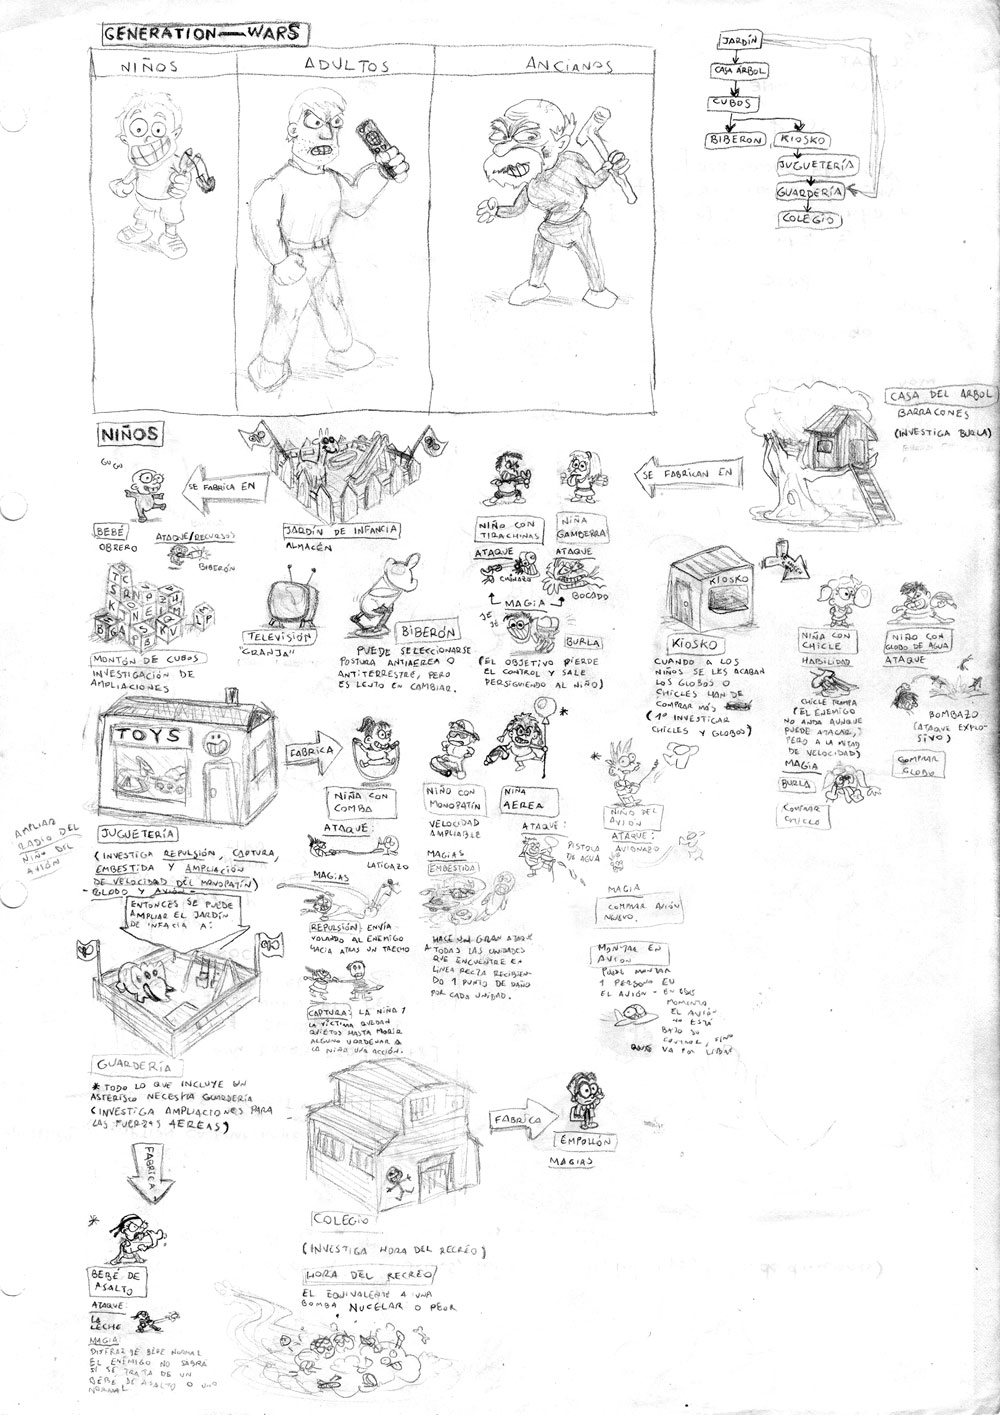 GENERATION-WARS
NIÑOS
ADULTOS
ANCIANOS
JARDÍN
CASA ARBOL
CUBOS
BIBERON
KIOSKO
JUGUETERÍA
GUARDERÍA
COLEGIO
CASA DEL ARBOL
BARRACONES
(INVESTIGA BURLA)
NIÑOS
GUGU
SE FABRICA EN
BEBÉ
OBRERO
ATAQUE/RECURSOS
BIBERÓN
JARDÍN DE INFANCIA
ALMACÉN
SE FABRICAN EN
NIÑO CON
TIRACHINAS
ATAQUE
CHINAZO
NIÑA
GAMBERRA
ATAQUE
BOCADO
MAGIA
JE
JÉ
BURLA
(EL OBJETIVO PIERDE
EL CONTROL Y SALE
PERSIGUIENDO AL NIÑO)
MONTÓN DE CUBOS
INVESTIGACIÓN DE
AMPLIACIONES
TELEVISIÓN
"GRANJA"
BIBERÓN
PUEDE SELECCIONARSE
POSTURA ANTIAEREA O
ANTITERRESTRE, PERO
ES LENTO EN CAMBIAR.
KIOSKO
KIOSKO
CUANDO A LOS
NIÑOS SE LES ACABAN
LOS GLOBOS O
CHICLES HAN DE
COMPRAR MÁS
(1º INVESTIGAR
CHICLES Y GLOBOS)
NIÑA CON
CHICLE
HABILIDAD
CHICLE TRAMPA
(EL ENEMIGO
NO ANDA AUNQUE
PUEDE ATACAR,
PERO A LA MITAD
DE VELOCIDAD)
MAGIA
BURLA
COMPRAR
CHICLE
NIÑO CON
GLOBO DE AGUA
ATAQUE
BOMBAZO
(ATAQUE EXPLO-
SIVO)
COMPRAR
GLOBO
TOYS
JUGUETERÍA
(INVESTIGA REPULSIÓN, CAPTURA,
EMBESTIDA Y AMPLIACIÓN
DE VELOCIDAD DEL MONOPATÍN)
-GLOBO Y AVIÓN-
AMPLIAR
RADIO DEL
NIÑO DEL
AVIÓN
FABRICA
NIÑA CON
COMBA
ATAQUE:
LATIGAZO
MAGIAS
REPULSIÓN: ENVÍA
VOLANDO AL ENEMIGO
HACIA ATRÁS UN TRECHO
CAPTURA: LA NIÑA Y
LA VÍCTIMA QUEDAN
QUIETOS HASTA MORIR
ALGUNO U ORDENAR A
LA NIÑA UNA ACCIÓN.
NIÑO CON
MONOPATÍN
VELOCIDAD
AMPLIABLE
MAGIAS
EMBESTIDA
HACE UN GRAN ATAQUE
A TODAS LAS UNIDADES
QUE ENCUENTRE EN
LINEA RECTA RECIBIEN-
DO 1 PUNTO DE DAÑO
POR CADA UNIDAD.
*
NIÑA
AEREA
ATAQUE:
PISTOLA
DE AGUA
*
NIÑO DEL
AVIÓN
ATAQUE:
AVIONAZO
MAGIA
COMPRAR AVIÓN
NUEVO.
MONTAR EN
AVIÓN
PUEDE MONTAR
1 PERSONA EN
EL AVIÓN - EN ESE
MOMENTO
EL AVIÓN
NO ESTÁ
BAJO SU
CONTROL, SINO
QUE VA POR LIBRE
ENTONCES SE PUEDE
AMPLIAR EL JARDÍN
DE INFACIA A:
GUARDERÍA
* TODO LO QUE INCLUYE UN
ASTERISCO NECESITA GUARDERÍA
(INVESTIGA AMPLIACIONES PARA
LAS FUERZAS AEREAS)
FABRICA
*
BEBÉ DE
ASALTO
ATAQUE:
LA
LECHE
MAGIA:
DISFRAZ DE BEBÉ NORMAL
EL ENEMIGO NO SABRÁ
SI SE TRATA DE UN
BEBÉ DE ASALTO O UNO
NORMAL
COLEGIO
(INVESTIGA HORA DEL RECREO)
HORA DEL RECREO
EL EQUIVALENTE A UNA
BOMBA NUCELAR O PEOR
FABRICA
EMPOLLÓN
MAGIAS